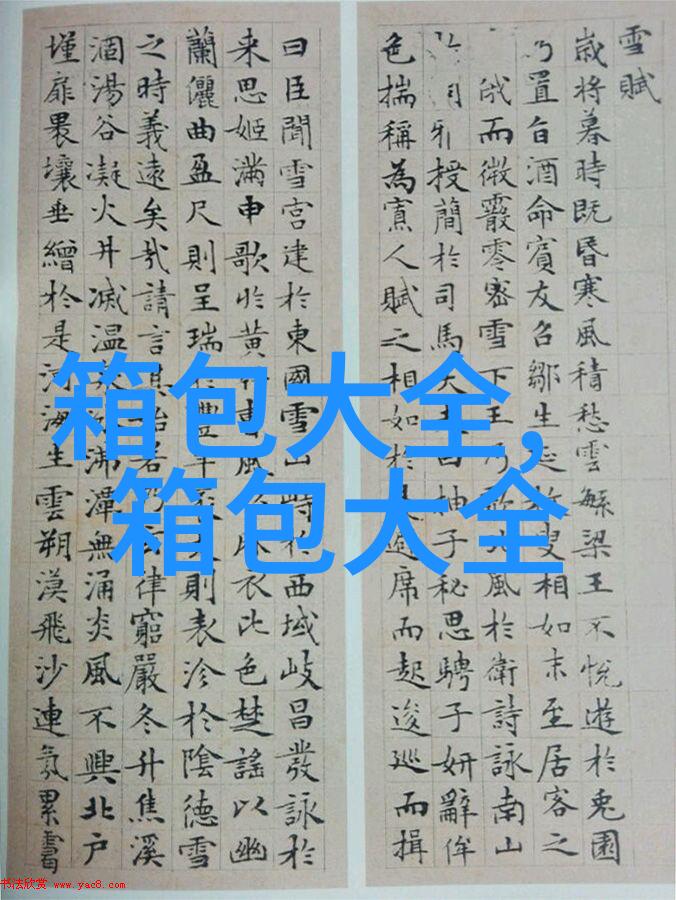 雪賦
歲將暮時既昏寒風積愁雲繁梁王不悅遊於兎園
乃置旨酒命賓友召鄒生延枚叟相如末至居客之
俄而微霰零密雪下王乃歌北風於衛詩詠南山
雅授簡於司馬大夫曰抽子秘思騁子妍辭侔
色揣稱為寡人賦之相如於是避席而起逡巡而揖
曰臣聞雪宮建於東國雪山峙於西域岐昌發詠於
来思姬滿申歌於黄竹曹風以麻衣比色楚謠以幽
蘭儷曲盈尺則呈瑞於豐年袤丈則表沴於陰德雪
之時義遠矣哉請言其始若乃玄律窮嚴冬升焦溪
涸湯谷凝火井滅温泉冰沸潭無涌炎風不興北户
墐扉裸壤垂繒於是河海生雲朔漠飛沙連氛累靄
箱包大全,
箱包大全
书法欣赏 www.yac8.com